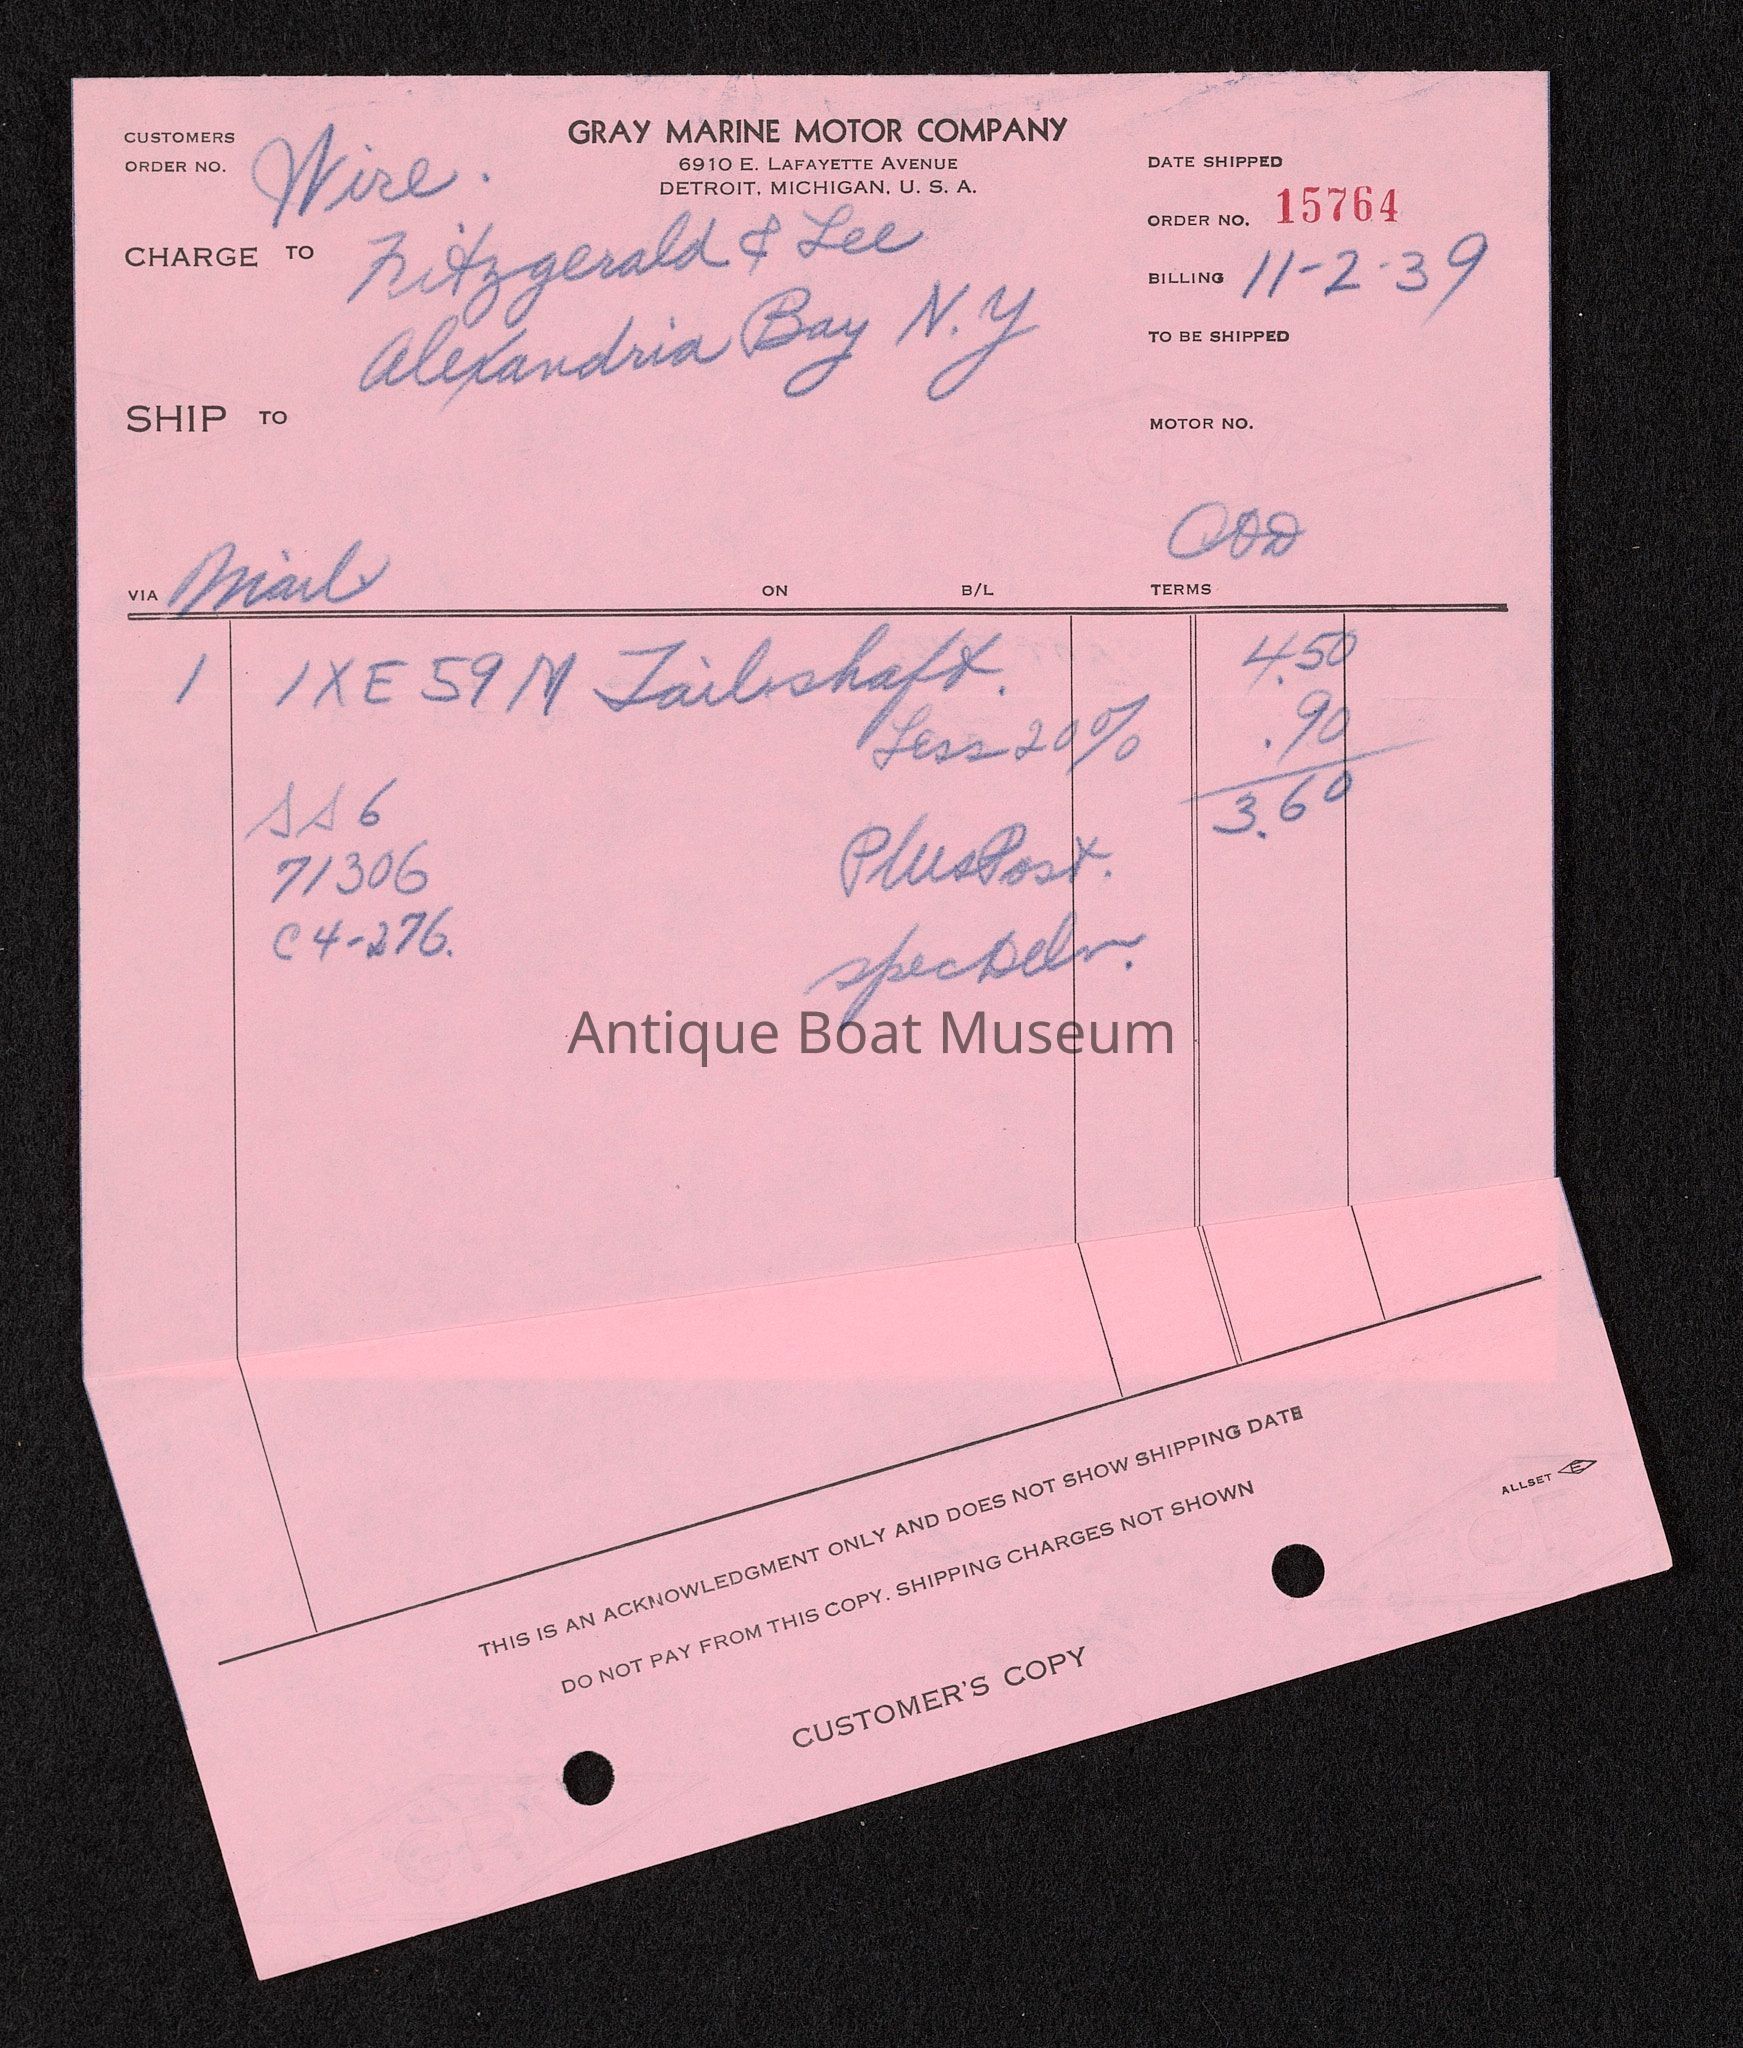 CUSTOMERS
ORDER NO. Wire.
GRAY MARINE MOTOR COMPANY
6910 E. LAFAYETTE AVENUE
DETROIT, MICHIGAN, U. S. A.
DATE SHIPPED
ORDER NO. 15764
CHARGE TO Fitzgerald & Lee
BILLING 11-2-39
Alexandria Bay N.Y
TO BE SHIPPED
SHIP TO
MOTOR NO.
COD
VIA Mail ON B/L TERMS
1 1XE59M Tailshaft. 4.50
Less 20% .90
3.60
SS6
71306 Plus Post.
C4-276. spec Delv.
Antique Boat Museum
THIS IS AN ACKNOWLEDGMENT ONLY AND DOES NOT SHOW SHIPPING DATE
DO NOT PAY FROM THIS COPY. SHIPPING CHARGES NOT SHOWN
ALLSET E
CUSTOMER'S COPY